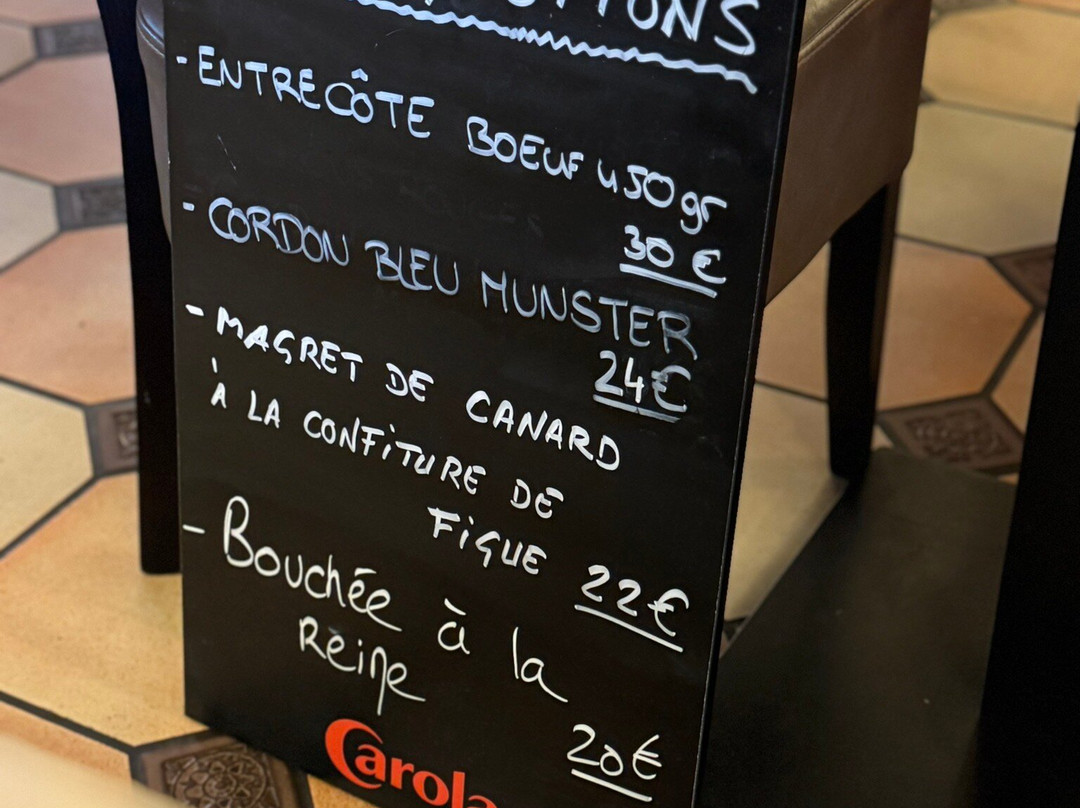 - ENTRECÔTE BOEUF 450gr
30 €
- CORDON BLEU MUNSTER
24€
- MAGRET DE CANARD
À LA CONFITURE DE
FIGUE 22€
- Bouchée à la
Reine
20€
Carola